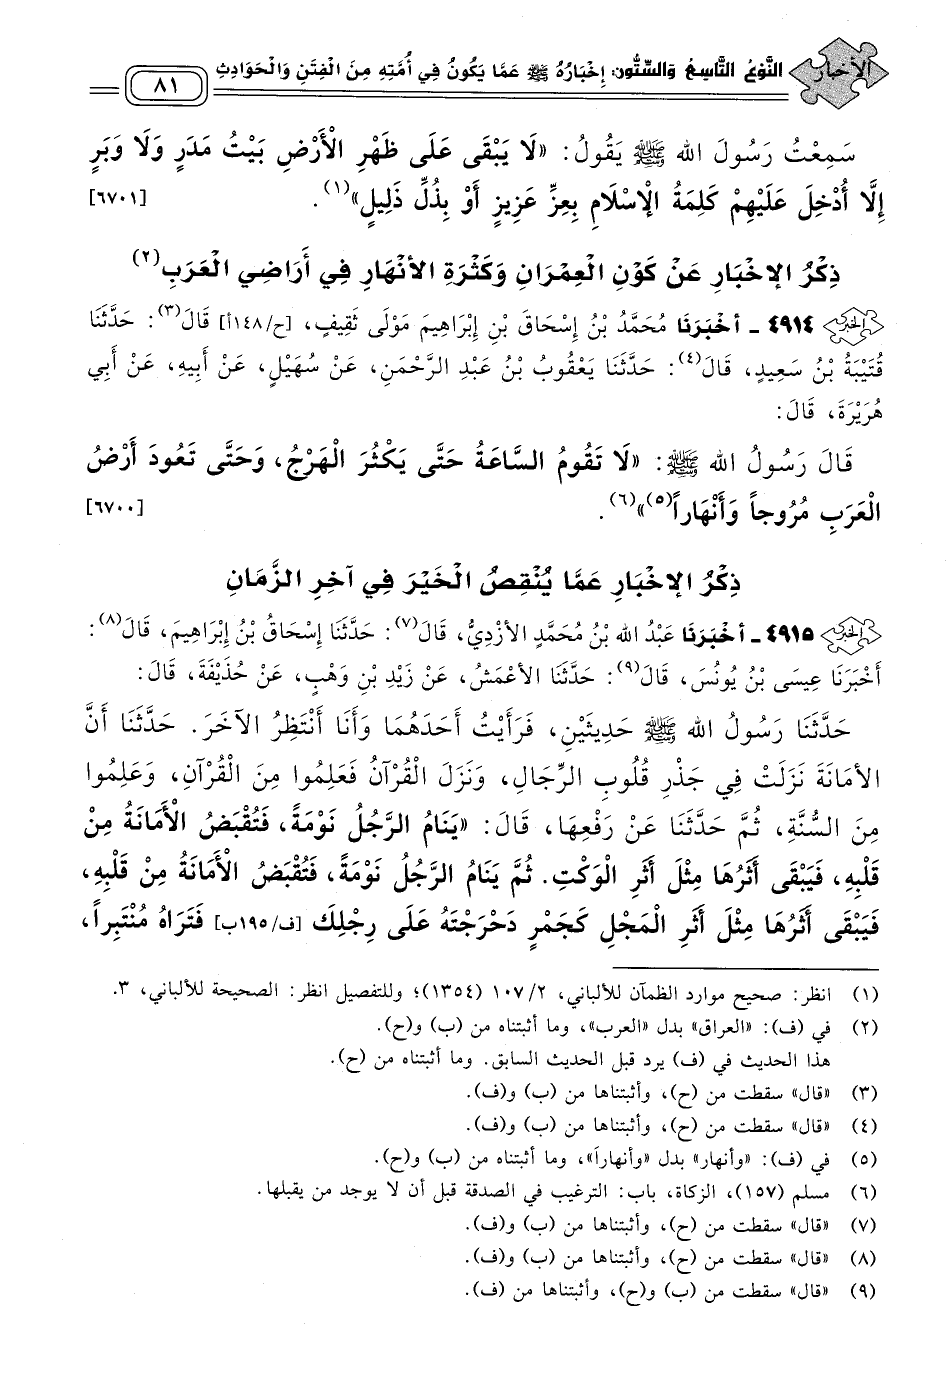 الأخبار النَّوْعُ التَّاسِعُ وَالسِّتُّونَ: إِخْبَارُهُ ﷺ عَمَّا يَكُونُ فِي أُمَّتِهِ مِنَ الْفِتَنِ وَالْحَوَادِثِ ٨١
سَمِعْتُ رَسُولَ الله ﷺ يَقُولُ: «لَا يَبْقَى عَلَى ظَهْرِ الْأَرْضِ بَيْتُ مَدَرٍ وَلَا وَبَرٍ
إِلَّا أُدْخِلَ عَلَيْهِمْ كَلِمَةُ الْإِسْلَامِ بِعِزِّ عَزِيزٍ أَوْ بِذُلِّ ذَلِيلٍ»(١). [٦٧٠١]
ذِكْرُ الإخْبَارِ عَنْ كَوْنِ الْعِمْرَانِ وَكَثْرَةِ الأنْهَارِ فِي أَرَاضِي الْعَرَبِ(٢)
الخبر ٤٩١٤ - أخْبَرَنَا مُحَمَّدُ بْنُ إِسْحَاقَ بْنِ إِبْرَاهِيمَ مَوْلَى ثَقِيفٍ، [ح/١٤٨أ] قَالَ(٣): حَدَّثَنَا
قُتَيْبَةُ بْنُ سَعِيدٍ، قَالَ(٤): حَدَّثَنَا يَعْقُوبُ بْنُ عَبْدِ الرَّحْمَنِ، عَنْ سُهَيْلٍ، عَنْ أَبِيهِ، عَنْ أَبِي
هُرَيْرَةَ، قَالَ:
قَالَ رَسُولُ الله ﷺ: «لَا تَقُومُ السَّاعَةُ حَتَّى يَكْثُرَ الْهَرْجُ، وَحَتَّى تَعُودَ أَرْضُ
الْعَرَبِ مُرُوجاً وَأَنْهَاراً(٥)»(٦). [٦٧٠٠]
ذِكْرُ الإخْبَارِ عَمَّا يُنْقِصُ الْخَيْرَ فِي آخِرِ الزَّمَانِ
الخبر ٤٩١٥ - أخْبَرَنَا عَبْدُ الله بْنُ مُحَمَّدٍ الأزْدِيُّ، قَالَ(٧): حَدَّثَنَا إِسْحَاقُ بْنُ إِبْرَاهِيمَ، قَالَ(٨):
أَخْبَرَنَا عِيسَى بْنُ يُونُسَ، قَالَ(٩): حَدَّثَنَا الأعْمَشُ، عَنْ زَيْدِ بْنِ وَهْبٍ، عَنْ حُذَيْفَةَ، قَالَ:
حَدَّثَنَا رَسُولُ الله ﷺ حَدِيثَيْنِ، فَرَأَيْتُ أَحَدَهُمَا وَأَنَا أَنْتَظِرُ الآخَرَ. حَدَّثَنَا أَنَّ
الأمَانَةَ نَزَلَتْ فِي جَذْرِ قُلُوبِ الرِّجَالِ، وَنَزَلَ الْقُرْآنُ فَعَلِمُوا مِنَ الْقُرْآنِ، وَعَلِمُوا
مِنَ السُّنَّةِ، ثُمَّ حَدَّثَنَا عَنْ رَفْعِهَا، قَالَ: «يَنَامُ الرَّجُلُ نَوْمَةً، فَتُقْبَضُ الْأَمَانَةُ مِنْ
قَلْبِهِ، فَيَبْقَى أَثَرُهَا مِثْلَ أَثَرِ الْوَكْتِ. ثُمَّ يَنَامُ الرَّجُلُ نَوْمَةً، فَتُقْبَضُ الْأَمَانَةُ مِنْ قَلْبِهِ،
فَيَبْقَى أَثَرُهَا مِثْلَ أَثَرِ الْمَجْلِ كَجَمْرٍ دَحْرَجْتَهُ عَلَى رِجْلِكَ [ف/١٩٥ب] فَتَرَاهُ مُنْتَبِراً،
(١) انظر: صحيح موارد الظمآن للألباني، ٢/ ١٠٧ (١٣٥٤)؛ وللتفصيل انظر: الصحيحة للألباني، ٣.
(٢) في (ف): «العراق» بدل «العرب»، وما أثبتناه من (ب) و(ح).
هذا الحديث في (ف) يرد قبل الحديث السابق. وما أثبتناه من (ح).
(٣) «قال» سقطت من (ح)، وأثبتناها من (ب) و(ف).
(٤) «قال» سقطت من (ح)، وأثبتناها من (ب) و(ف).
(٥) في (ف): «وأنهار» بدل «وأنهاراً»، وما أثبتناه من (ب) و(ح).
(٦) مسلم (١٥٧)، الزكاة، باب: الترغيب في الصدقة قبل أن لا يوجد من يقبلها.
(٧) «قال» سقطت من (ح)، وأثبتناها من (ب) و(ف).
(٨) «قال» سقطت من (ح)، وأثبتناها من (ب) و(ف).
(٩) «قال» سقطت من (ب) و(ح)، وأثبتناها من (ف).